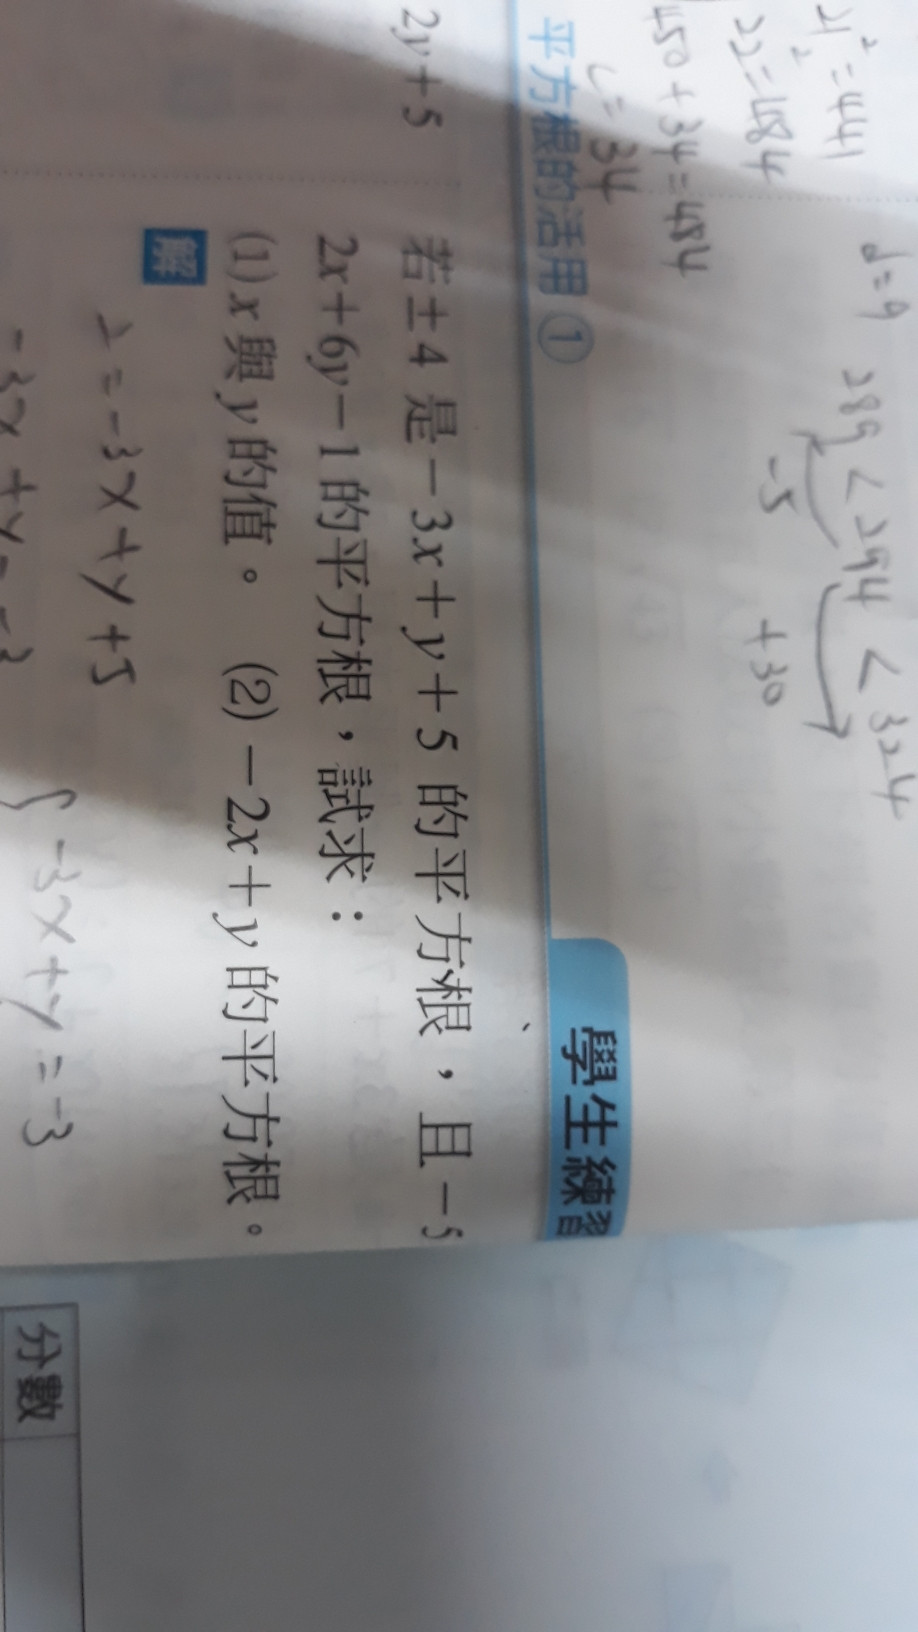 21²=441
22²=484
450+34=484
c=34
d=9
289<294<324
-5 +30
學生練習
平方根的活用①
2y+5
若±4 是-3x+y+5 的平方根,且-5
2x+6y-1 的平方根,試求:
(1) x 與 y 的值。 (2)-2x+y 的平方根。
解
2=-3x+y+5
-3x+y=-3
{-3x+y=-3
分數